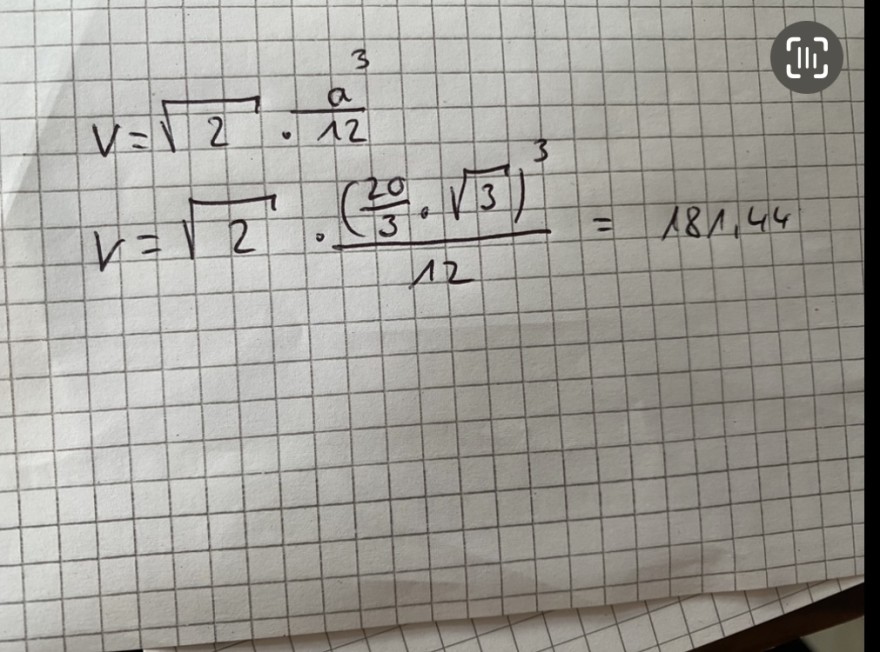 V = √2 · a³/12
V = √2 · (20/3 · √3)³/12 = 181,44